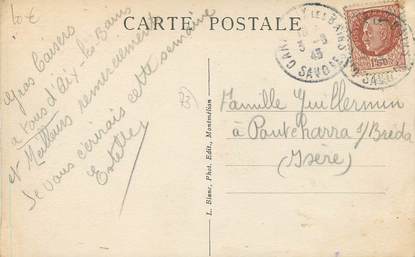 10€
CARTE POSTALE
Gros baisers
à vous d'Aix-les-Bains
et Meilleurs remerciements
Je vous écrirais cette semaine
Estelle
L. Blanc, Phot. Edit., Montmélian
LES BAINS
43
SAVOIE
1F50
Famille Guillermin
à Pontcharra s/Bréda
(Isère)